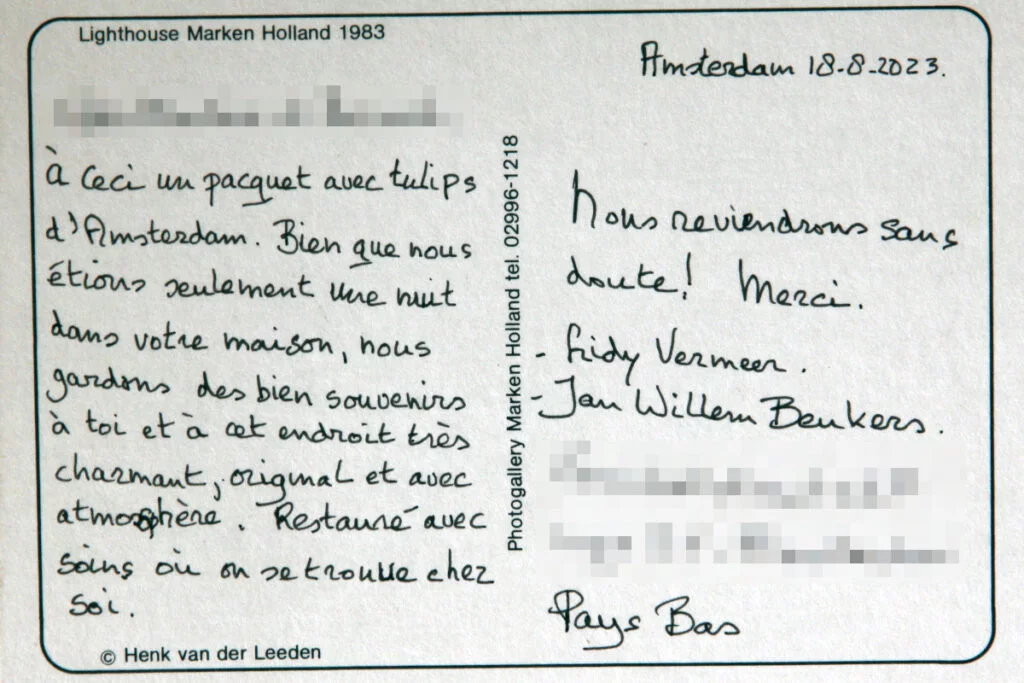 Lighthouse Marken Holland 1983
Amsterdam 18-8-2023.
À Ceci un pacquet avec tulips
d'Amsterdam. Bien que nous
étions seulement une nuit
dans votre maison, nous
gardons des bien souvenirs
à toi et à cet endroit très
charmant, original et avec
atmosphère. Restauré avec
soins où on se trouve chez
soi.
© Henk van der Leeden
Photogallery Marken Holland tel. 02996-1218
Nous reviendrons sans
doute! Merci.
- Fridy Vermeer.
- Jan Willem Beukers.
Pays Bas